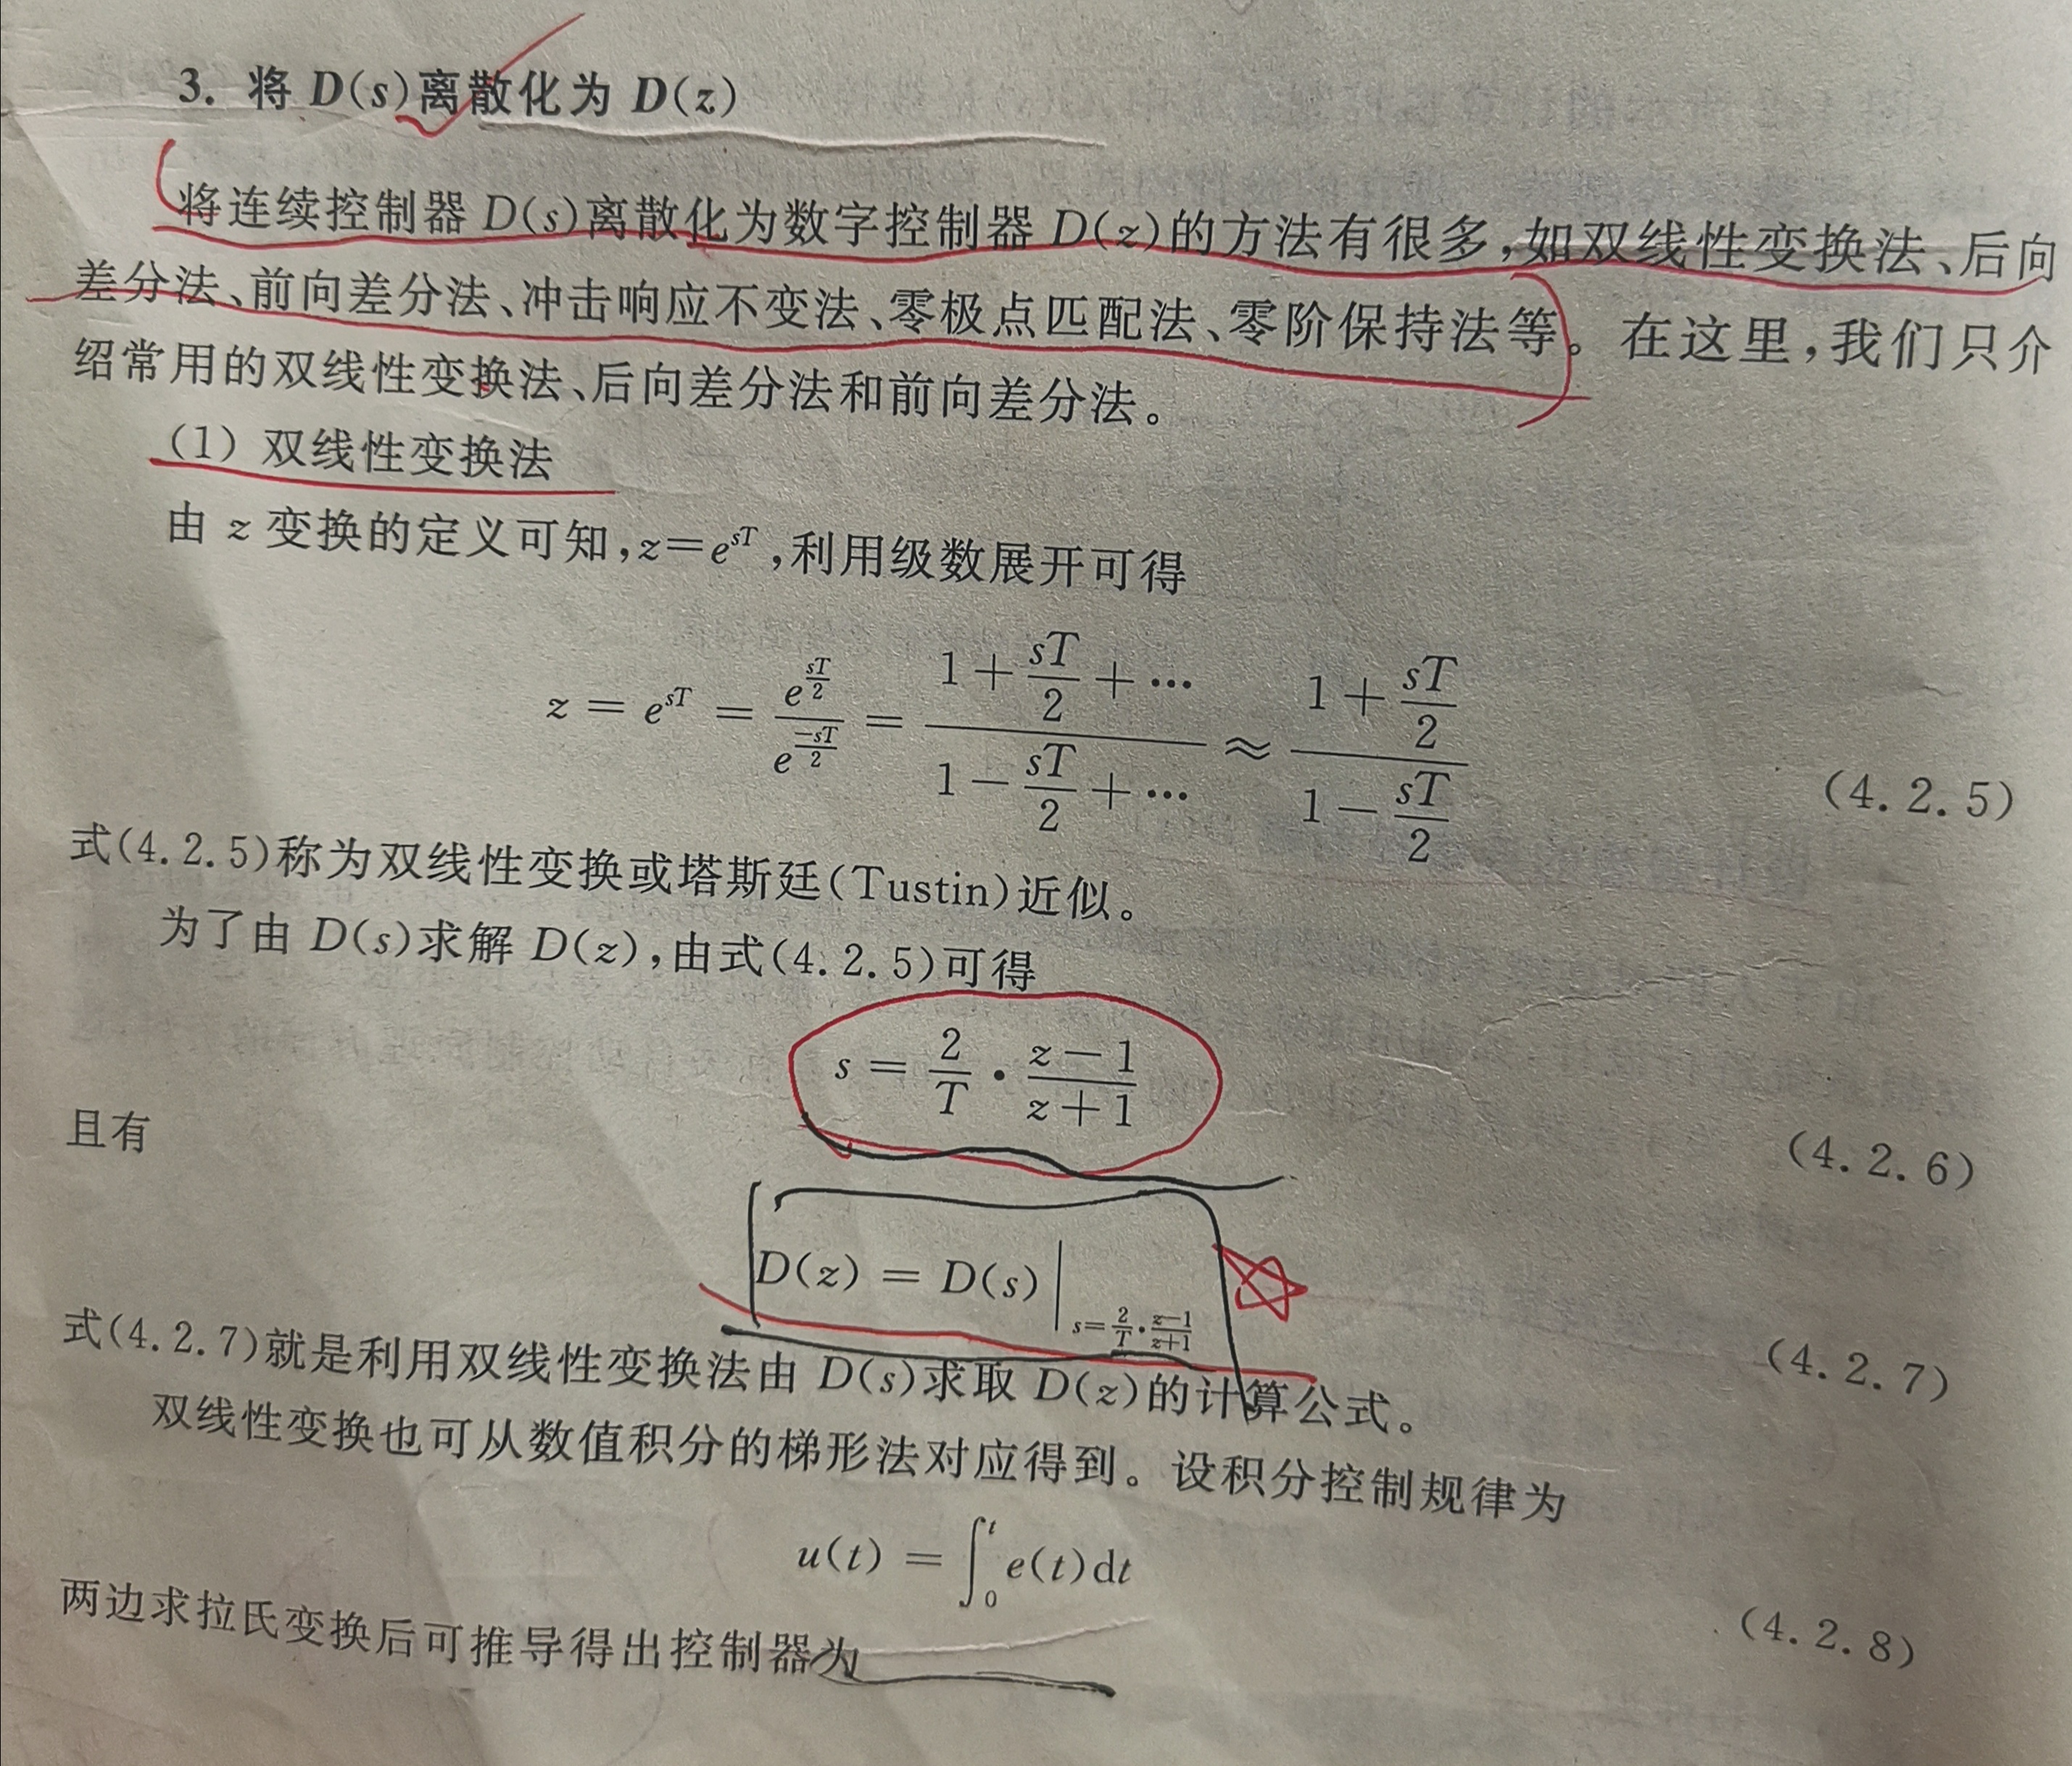 3. 将 D(s)离散化为 D(z)
将连续控制器 D(s)离散化为数字控制器 D(z)的方法有很多,如双线性变换法、后向
差分法、前向差分法、冲击响应不变法、零极点匹配法、零阶保持法等。在这里,我们只介
绍常用的双线性变换法、后向差分法和前向差分法。
(1) 双线性变换法
由 z 变换的定义可知,z=e^{sT},利用级数展开可得
z = e^{sT} = \frac{e^{\frac{sT}{2}}}{e^{\frac{-sT}{2}}} = \frac{1+\frac{sT}{2}+\cdots}{1-\frac{sT}{2}+\cdots} ≈ \frac{1+\frac{sT}{2}}{1-\frac{sT}{2}} (4.2.5)
式(4.2.5)称为双线性变换或塔斯廷(Tustin)近似。
为了由 D(s)求解 D(z),由式(4.2.5)可得
s = \frac{2}{T} · \frac{z-1}{z+1} (4.2.6)
且有
D(z) = D(s)|_{s=\frac{2}{T}·\frac{z-1}{z+1}} (4.2.7)
式(4.2.7)就是利用双线性变换法由 D(s)求取 D(z)的计算公式。
双线性变换也可从数值积分的梯形法对应得到。设积分控制规律为
u(t) = \int_0^t e(t)dt (4.2.8)
两边求拉氏变换后可推导得出控制器为